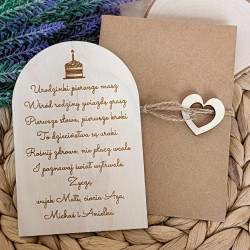 Urodzinki pierwsze masz
Wśród rodziny gwiazdę grasz
Pierwsze słowa, pierwsze kroki
To dzieciństwa są uroki
Rośnij zdrowo, nie płacz wcale
I poznawaj świat wytrwale.
Życzą
wujek Mati, ciocia Aga,
Michaś i Anielka